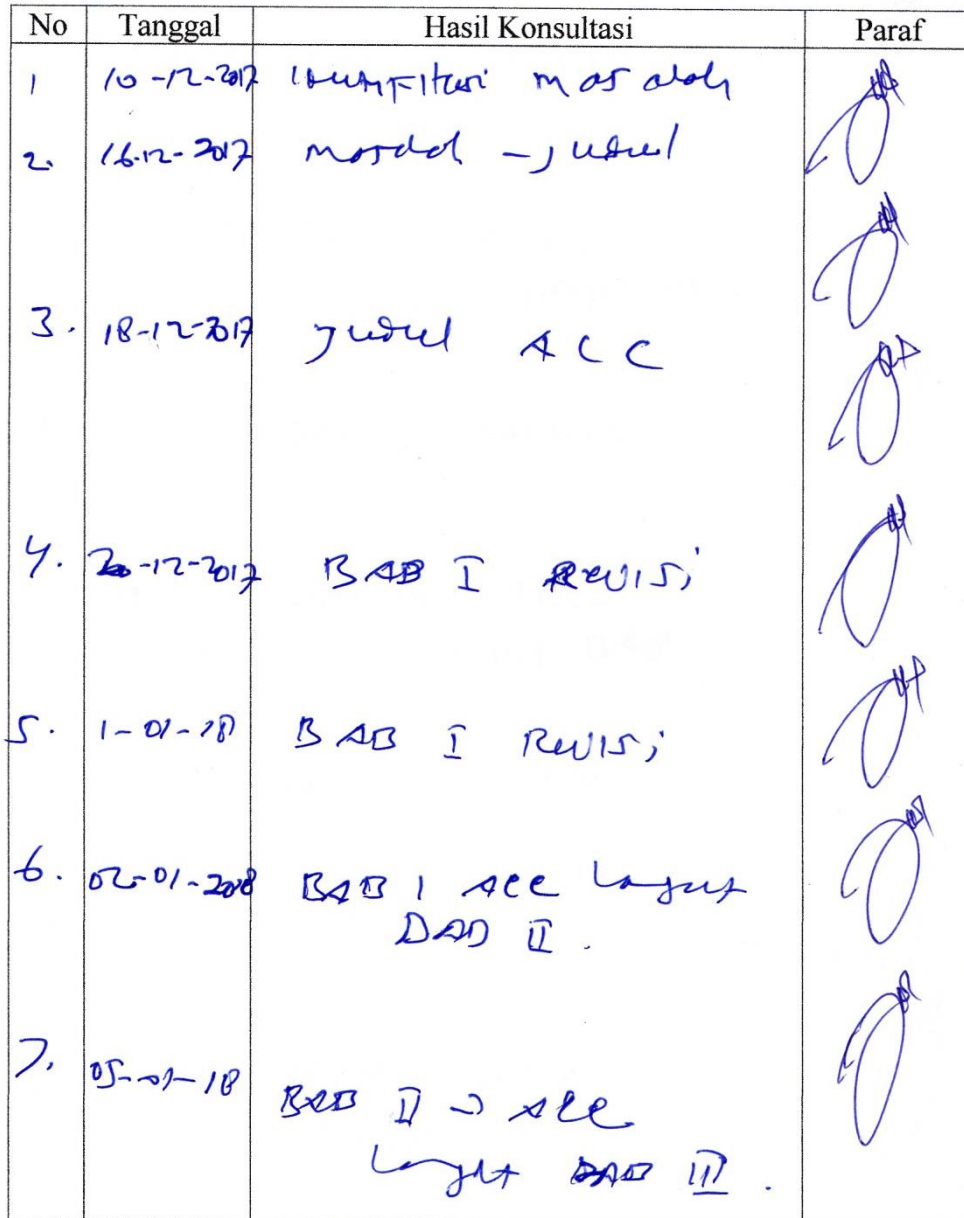 No Tanggal Hasil Konsultasi Paraf
1 10-12-2017 identifikasi masalah
2. 16-12-2017 masalah - judul
3. 18-12-2017 judul ACC
4. 20-12-2017 BAB I Revisi
5. 1-01-18 BAB I Revisi
6. 02-01-2018 BAB I ACC Lanjut
BAB II.
7. 05-01-18
BAB II → ACC
Lanjut BAB III.